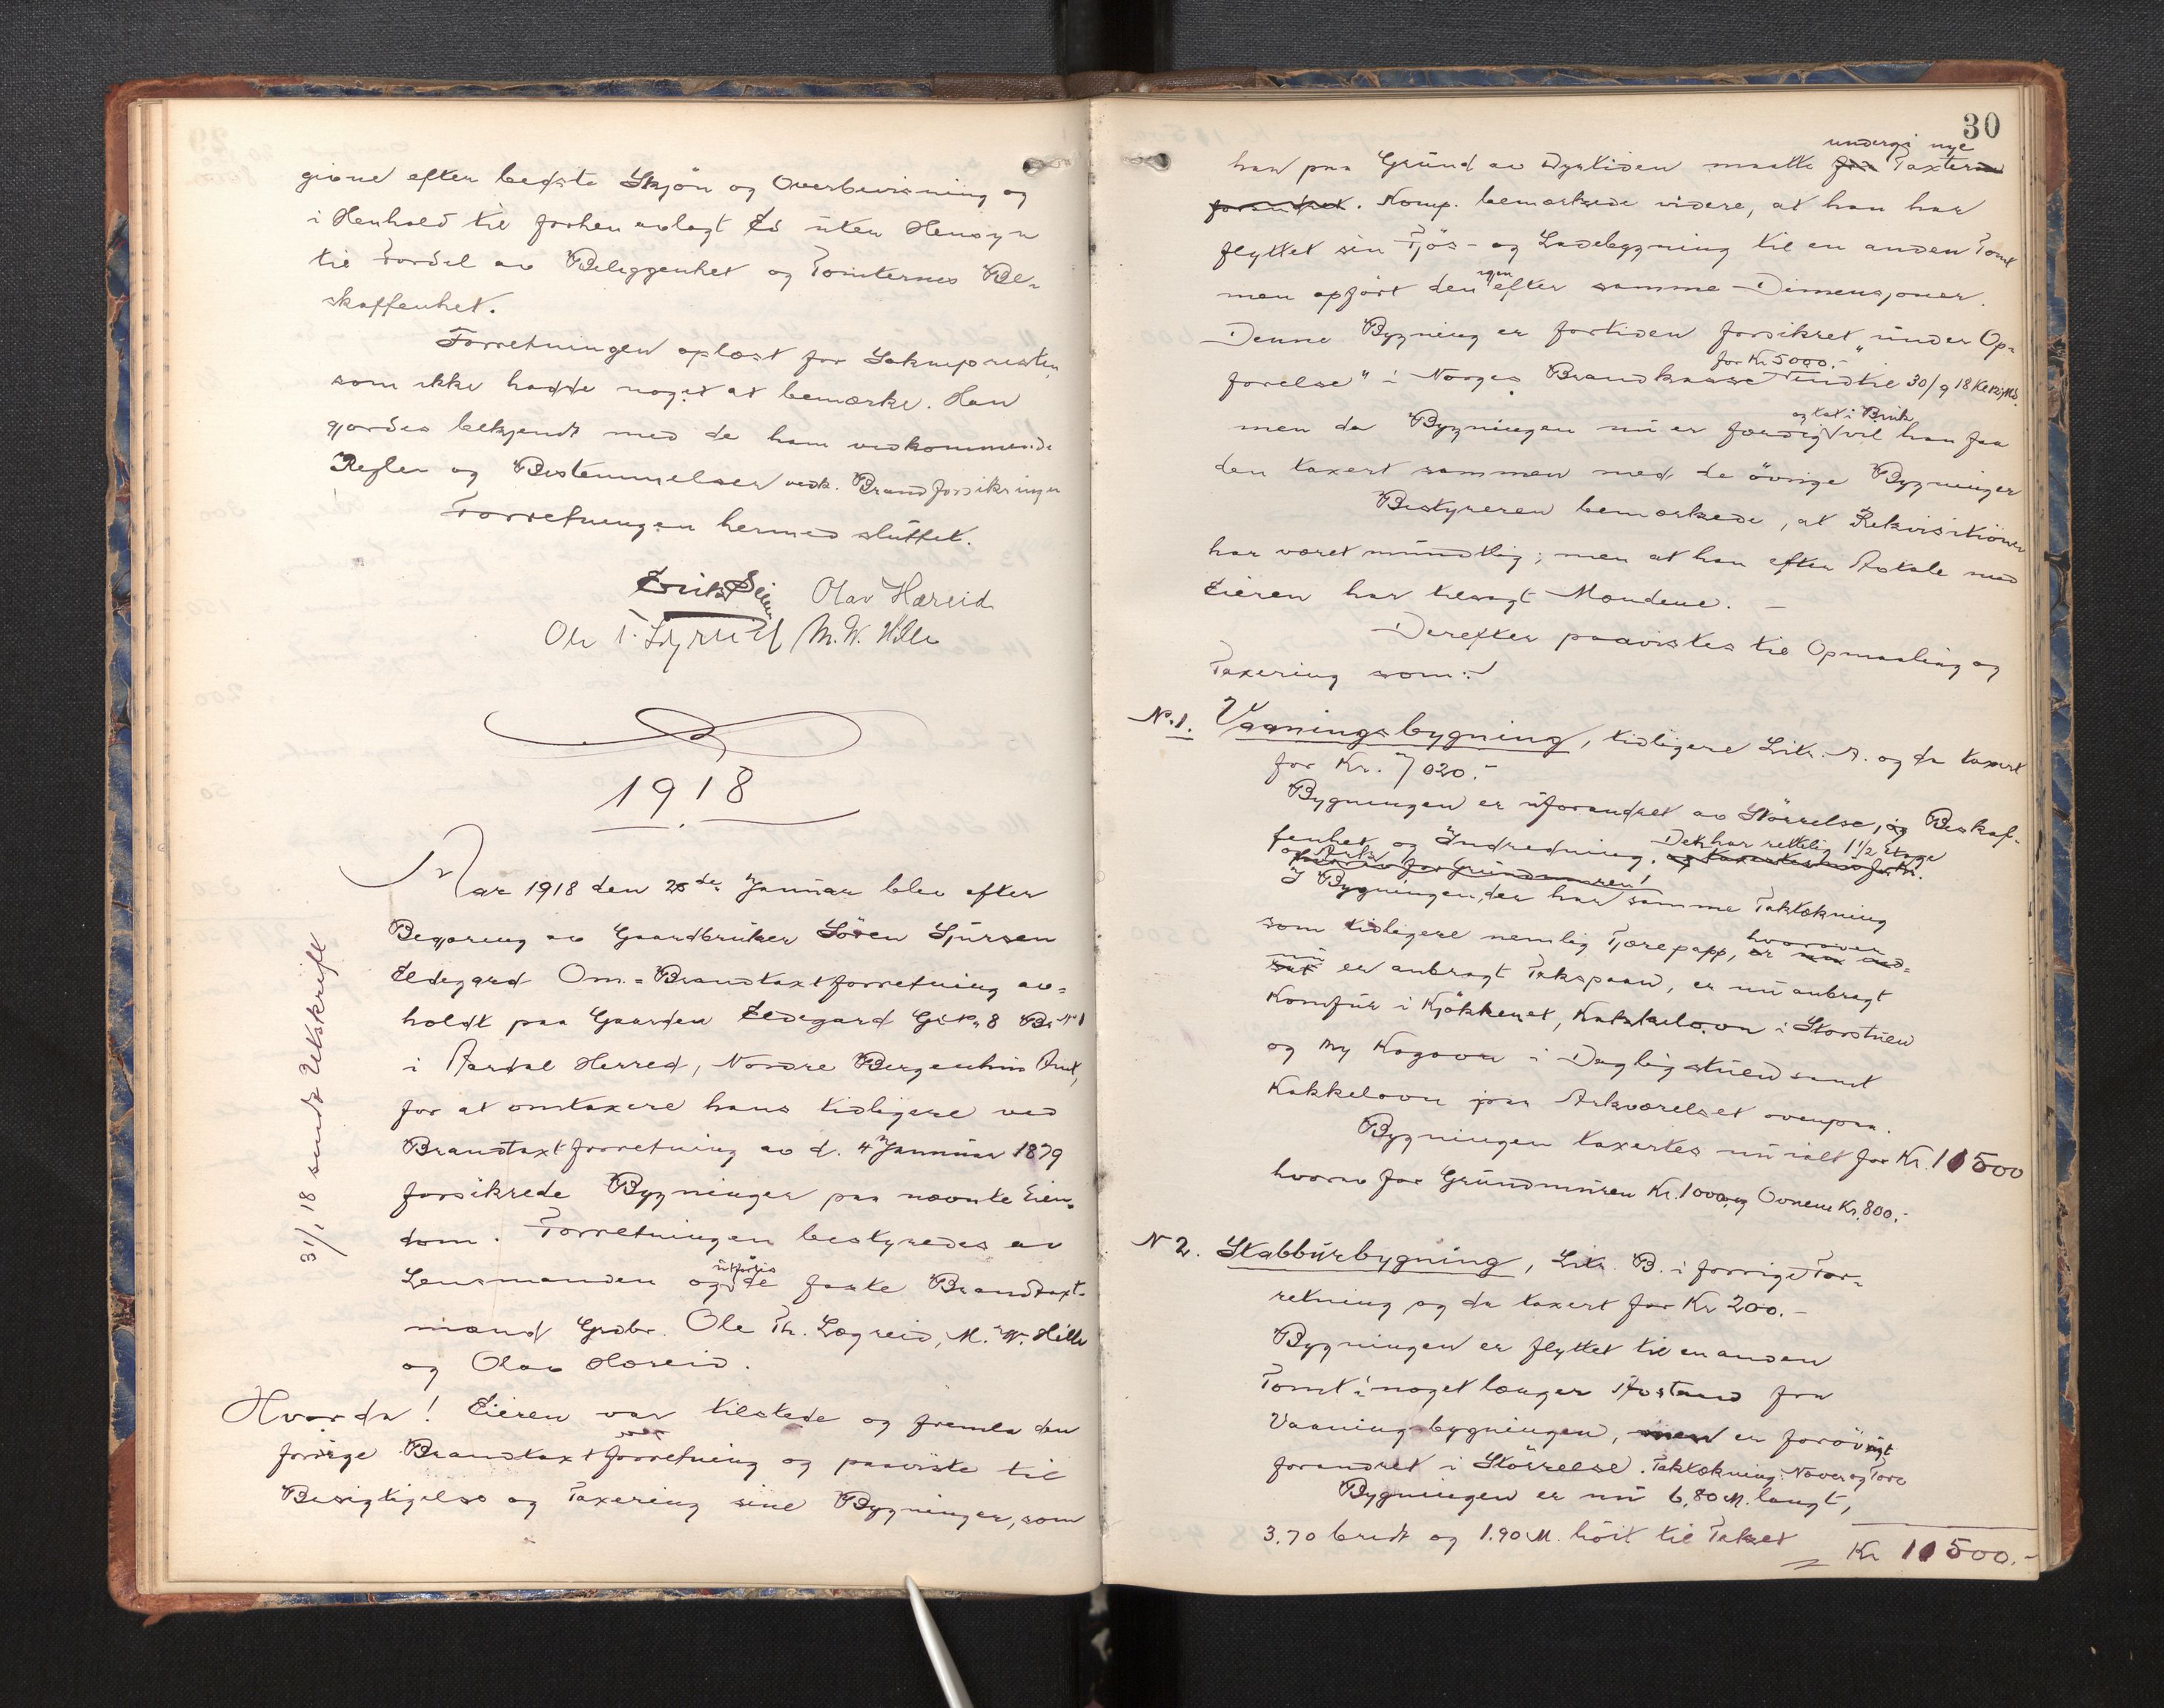 givne efter bedste Skjön og Overbevisning og
i Henhold til forhen avlagt Ed uten Hensyn
til Fordel av Beliggenhet og Tomternes Be-
skaffenhet.
Forretningen oplæst for Soknepresten,
som ikke hadde noget at bemærke. Han
gjordes bekjendt med de ham vedkommende
Regler og Bestemmelser vedk. Brandforsikringen
Forretningen hermed sluttet.
Olav Hæreid
M. W. Hille
1918
Aar 1918 den 28de Januar blev efter
Begjæring av Gaardbruker Sören Sjursen
Eldegard Om-Brandtaxtforretning av-
holdt paa Gaarden Eldegard G.No. 8 Br.No 1
i Aardal Herred, Nordre Bergenhus Amt,
for at omtaxere hans tidligere ved
Brandtaxtforretning av d. 4 Januar 1879
forsikrede Bygninger paa nævnte Eien-
dom. Forretningen bestyredes av
Lensmanden og utförtes de faste Brandtaxt-
mænd Grdbr. Ole Th. Lægreid, M. W. Hille
og Olav Hæreid.
Hvorda! Eieren var tilstede og fremla den
forrige Brandtaxtforretning og paaviste til
Besigtigelse og Taxering sine Bygninger, som
31/1 18 sendt Utskrift
30
han paa Grund av Dyrtiden maatte faa undergi nye Taxter
forandret. Komp. bemærkede videre, at han har
flyttet sin Fjös- og Ladebygning til en anden Tomt
men opfört den igen efter samme Dimensjoner.
Denne Bygning er fortiden forsikret "under Op-
förelse" i Norges Brandkasse for Kr 5000.- indtil 30/9 18 Kl 12 Md.
men da Bygningen nu er færdig og tat i Bruk vil han faa
den taxert sammen med de övrige Bygninger
Bestyreren bemærkede, at Rekvisitionen
har været mundtlig; men at han efter Avtale med
Eieren har tilsagt Mændene. -
Derefter paavistes til Opmaaling og
Taxering som:
No. 1. Vaaningsbygning, tidligere Litr. A. og da taxert
for Kr. 7020.-
Bygningen er uforandret av Störrelse, og Beskaf-
fenhet og Indredning. Det har rettelig 1 1/2 Etage
og Ark
herav for Grundmuren!
I Bygningen, der har samme Taktækning
som tidligere nemlig Tjærepapp, hvorover
nu er anbragt Takspaan, er nu anbragt
Komfur i Kjökkenet, Kakkelovn i Storstuen
og ny Kogeovn i Dagligstuen samt
Kakkelovn paa Arkværelset ovenpaa.
Bygningen taxertes nu ialt for Kr. 11500
hvorav for Grundmuren Kr. 1000, og Ovnene Kr. 800.-
N 2. Stabbursbygning, Litr. B. i forrige For-
retning og da taxert for Kr 200.-
Bygningen er flyttet til en anden
Tomt i noget længer Avstand fra
Vaaningsbygningen, men er forövrigt
forandret i Störrelse. Taktækning: Næver og Torv
Bygningen er nu 6,80 M. langt,
3.70 bredt og 1.90 M. höit til Taket
Kr 11500.-